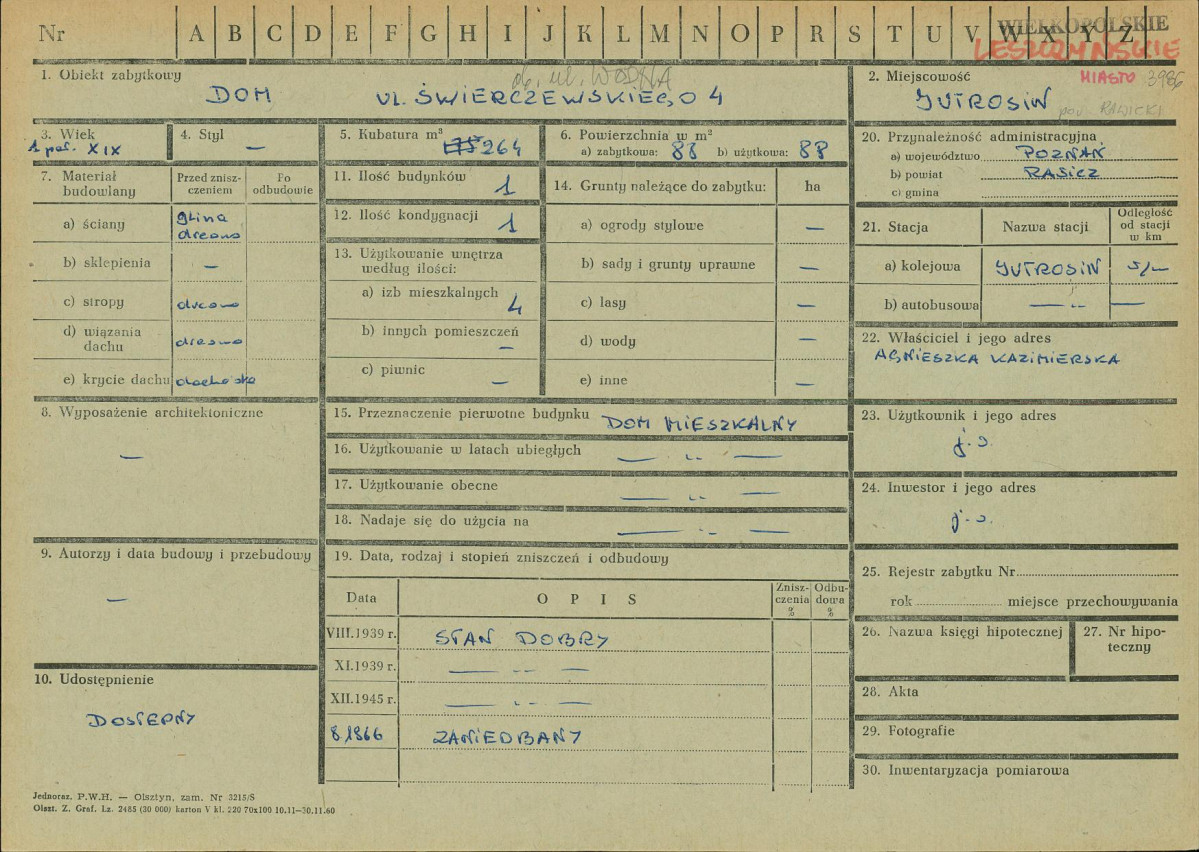 Nr A B C D E F G H I J K L M N O P R S T U V W X Y Z
WIELKOPOLSKIE
LESZCZYŃSKIE
MIASTO 3986
1. Obiekt zabytkowy
ob. ul. WODNA
DOM ul. ŚWIERCZEWSKIEGO 4
2. Miejscowość
JUTROSIN
pow. RAWICKI
3. Wiek
1 poł. XIX
4. Styl
—
5. Kubatura m³
264
6. Powierzchnia w m²
a) zabytkowa: 88 b) użytkowa: 88
20. Przynależność administracyjna
a) województwo POZNAŃ
b) powiat RAWICZ
c) gmina
7. Materiał budowlany
Przed znisz-
czeniem
Po
odbudowie
a) ściany glina
drewno
b) sklepienia —
c) stropy drewno
d) wiązania
dachu drewno
e) krycie dachu dachówka
11. Ilość budynków 1
12. Ilość kondygnacji 1
13. Użytkowanie wnętrza
według ilości:
a) izb mieszkalnych 4
b) innych pomieszczeń —
c) piwnic —
14. Grunty należące do zabytku: ha
a) ogrody stylowe —
b) sady i grunty uprawne —
c) lasy —
d) wody —
e) inne —
21. Stacja Nazwa stacji
Odległość
od stacji
w km
a) kolejowa JUTROSIN 5/—
b) autobusowa — „ — —
22. Właściciel i jego adres
AGNIESZKA KAZIMIERSKA
8. Wyposażenie architektoniczne
—
15. Przeznaczenie pierwotne budynku DOM MIESZKALNY
16. Użytkowanie w latach ubiegłych — „ —
17. Użytkowanie obecne — „ —
18. Nadaje się do użycia na — „ —
23. Użytkownik i jego adres
j.w.
24. Inwestor i jego adres
j.w.
9. Autorzy i data budowy i przebudowy
—
19. Data, rodzaj i stopień zniszczeń i odbudowy
Data OPIS
Znisz-
czenia
%
Odbu-
dowa
%
VIII.1939 r. STAN DOBRY
XI.1939 r. — „ —
XII.1945 r. — „ —
8.1966 ZANIEDBANY
10. Udostępnienie
DOSTĘPNY
25. Rejestr zabytku Nr
rok miejsce przechowywania
26. Nazwa księgi hipotecznej
27. Nr hipo-
teczny
28. Akta
29. Fotografie
30. Inwentaryzacja pomiarowa
Jednoraz. P.W.H. — Olsztyn, zam. Nr 3215/S
Olszt. Z. Graf. Lz. 2485 (30 000) karton V kl. 220 70x100 10.11—30.11.60